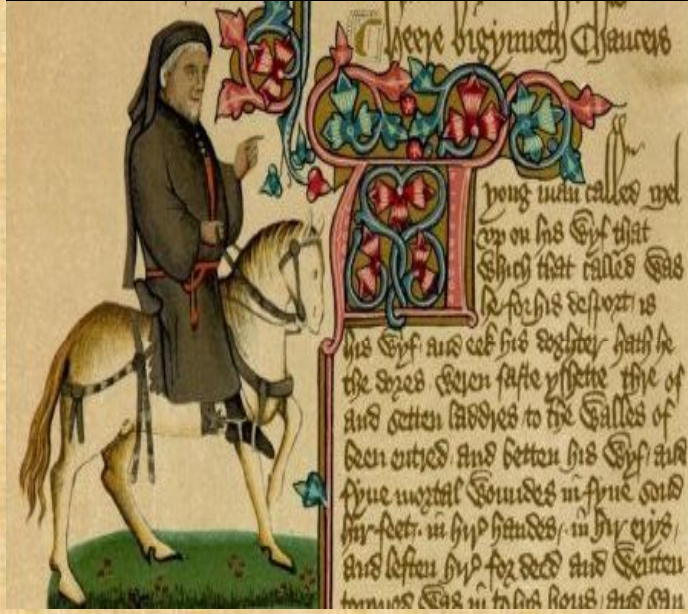 Heere bigynneth Chaucers
A yong man called Mel
vp on his wyf that
which that called was
he for his desport is
his wyf and eek his doghter hath he
the dores weren faste yshette thre of
and setten laddres to the walles of
been entred and betten his wyf and
fyue mortal woundes in fyue sond
hir feet. in hir handes/. in hir erys/
and leften hir for deed and wenten
torned was in to his hous and sau